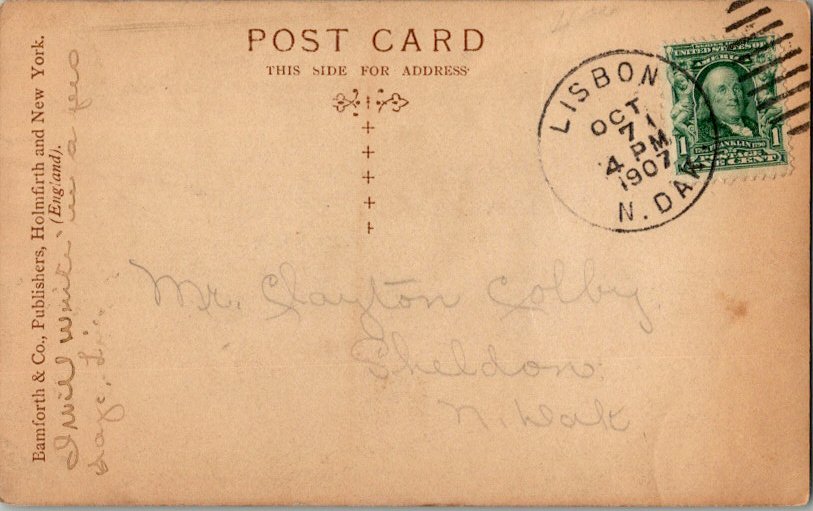 POST CARD
THIS SIDE FOR ADDRESS
Bamforth & Co., Publishers, Holmfirth and New York.
(England).
I will write in a few
days.
LISBON
OCT
71
4 PM
1907
N. DAK
SERIES 1902
UNITED STATES OF
AMERICA
1 1
FRANKLIN 1790
POSTAGE
ONE CENT
Mr. Clayton Colby
Sheldon
N. Dak